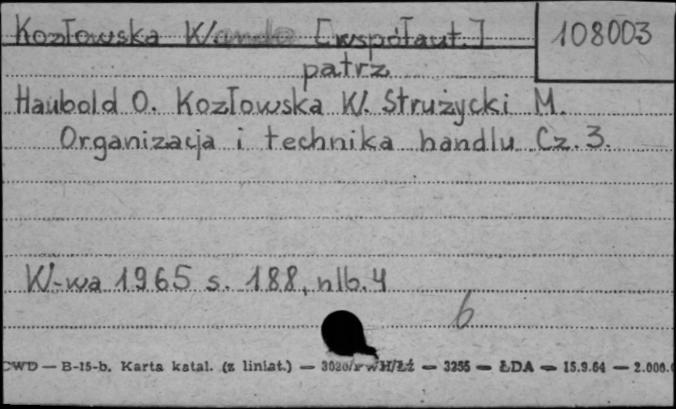 Kozłowska Wanda [współaut.] 108003
patrz
Haubold O. Kozłowska W. Strużycki M.
Organizacja i technika handlu Cz. 3.
W-wa 1965 s. 188, nlb. 4
6
CWD — B-15-b. Karta katal. (z liniat.) — — 3255 — ŁDA — 15.9.64 — 2.000.0